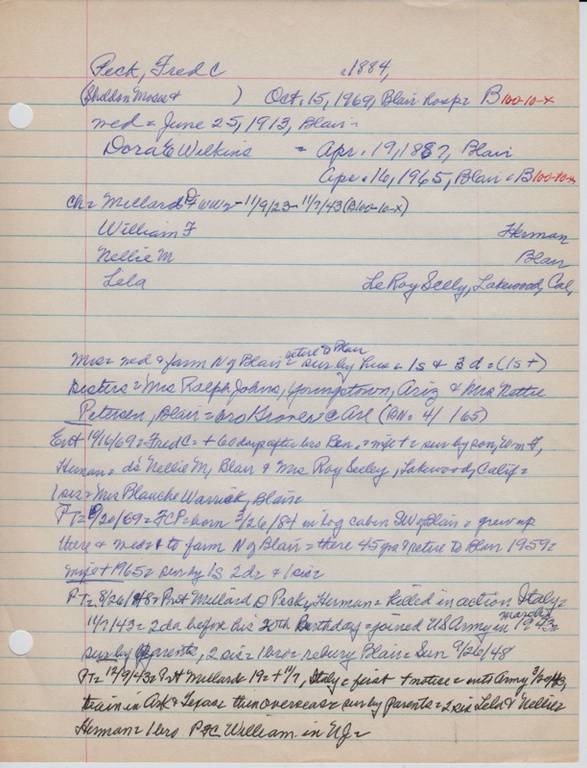 Peck, Fred C =1884,
(Sheldon Moses + ) Oct. 15, 1969, Blair hosp = B100-10-x
med = June 25, 1913, Blair =
Dora E Wilkins = Apr. 19, 1887, Blair
Apr. 16, 1965, Blair = B100-10-x
Ch = Millard D + WW2 - 11/9/23 - 11/7/43 (B100-10-x)
William F Herman
Nellie M Blair
Lela LeRoy Seely, Lakewood, Cal,
Mrs = med & farm N of Blair = retire to Blair sur by hus = 1s & 3 d = (1s +)
Sisters = Mrs Ralph Johns, Youngstown, Ariz & Mrs Nettie
Petersen, Blair = bro Grover & Art (BN = 4/ /65)
Ent 10/16/69 = Fred C = + 60 days after bro Ben, = wife + = sur by son, Wm F,
Herman = ds Nellie M, Blair & Mrs Roy Seeley, Lakewood, Calif =
1 sis = Mrs Blanche Warrick, Blair =
PT = /20/69 = FCP = born 3/26/84 in log cabin SW of Blair = grew up
there & med + to farm N of Blair = there 45 yrs & retire to Blair 1959 =
wife + 1965 = sur by 1s 2ds & 1 sis =
PT = 8/26/48 = Pvt Millard D Peck, Herman = killed in action Italy =
11/7/43 = 2 da before his 20th Birthday = joined US Army in March 1943 =
sur by parents, 2 sis = 1 bro = rebury Blair = Sun 9/26/48
PT = 12/9/43 = Pvt Millard 19 = + 11/7, Italy = first + notice = ents Army 3/ /43,
train in Ark & Texas then overseas = sur by parents = 2 sis Lela & Nellie =
Herman = 1 bro Pfc William in NJ =